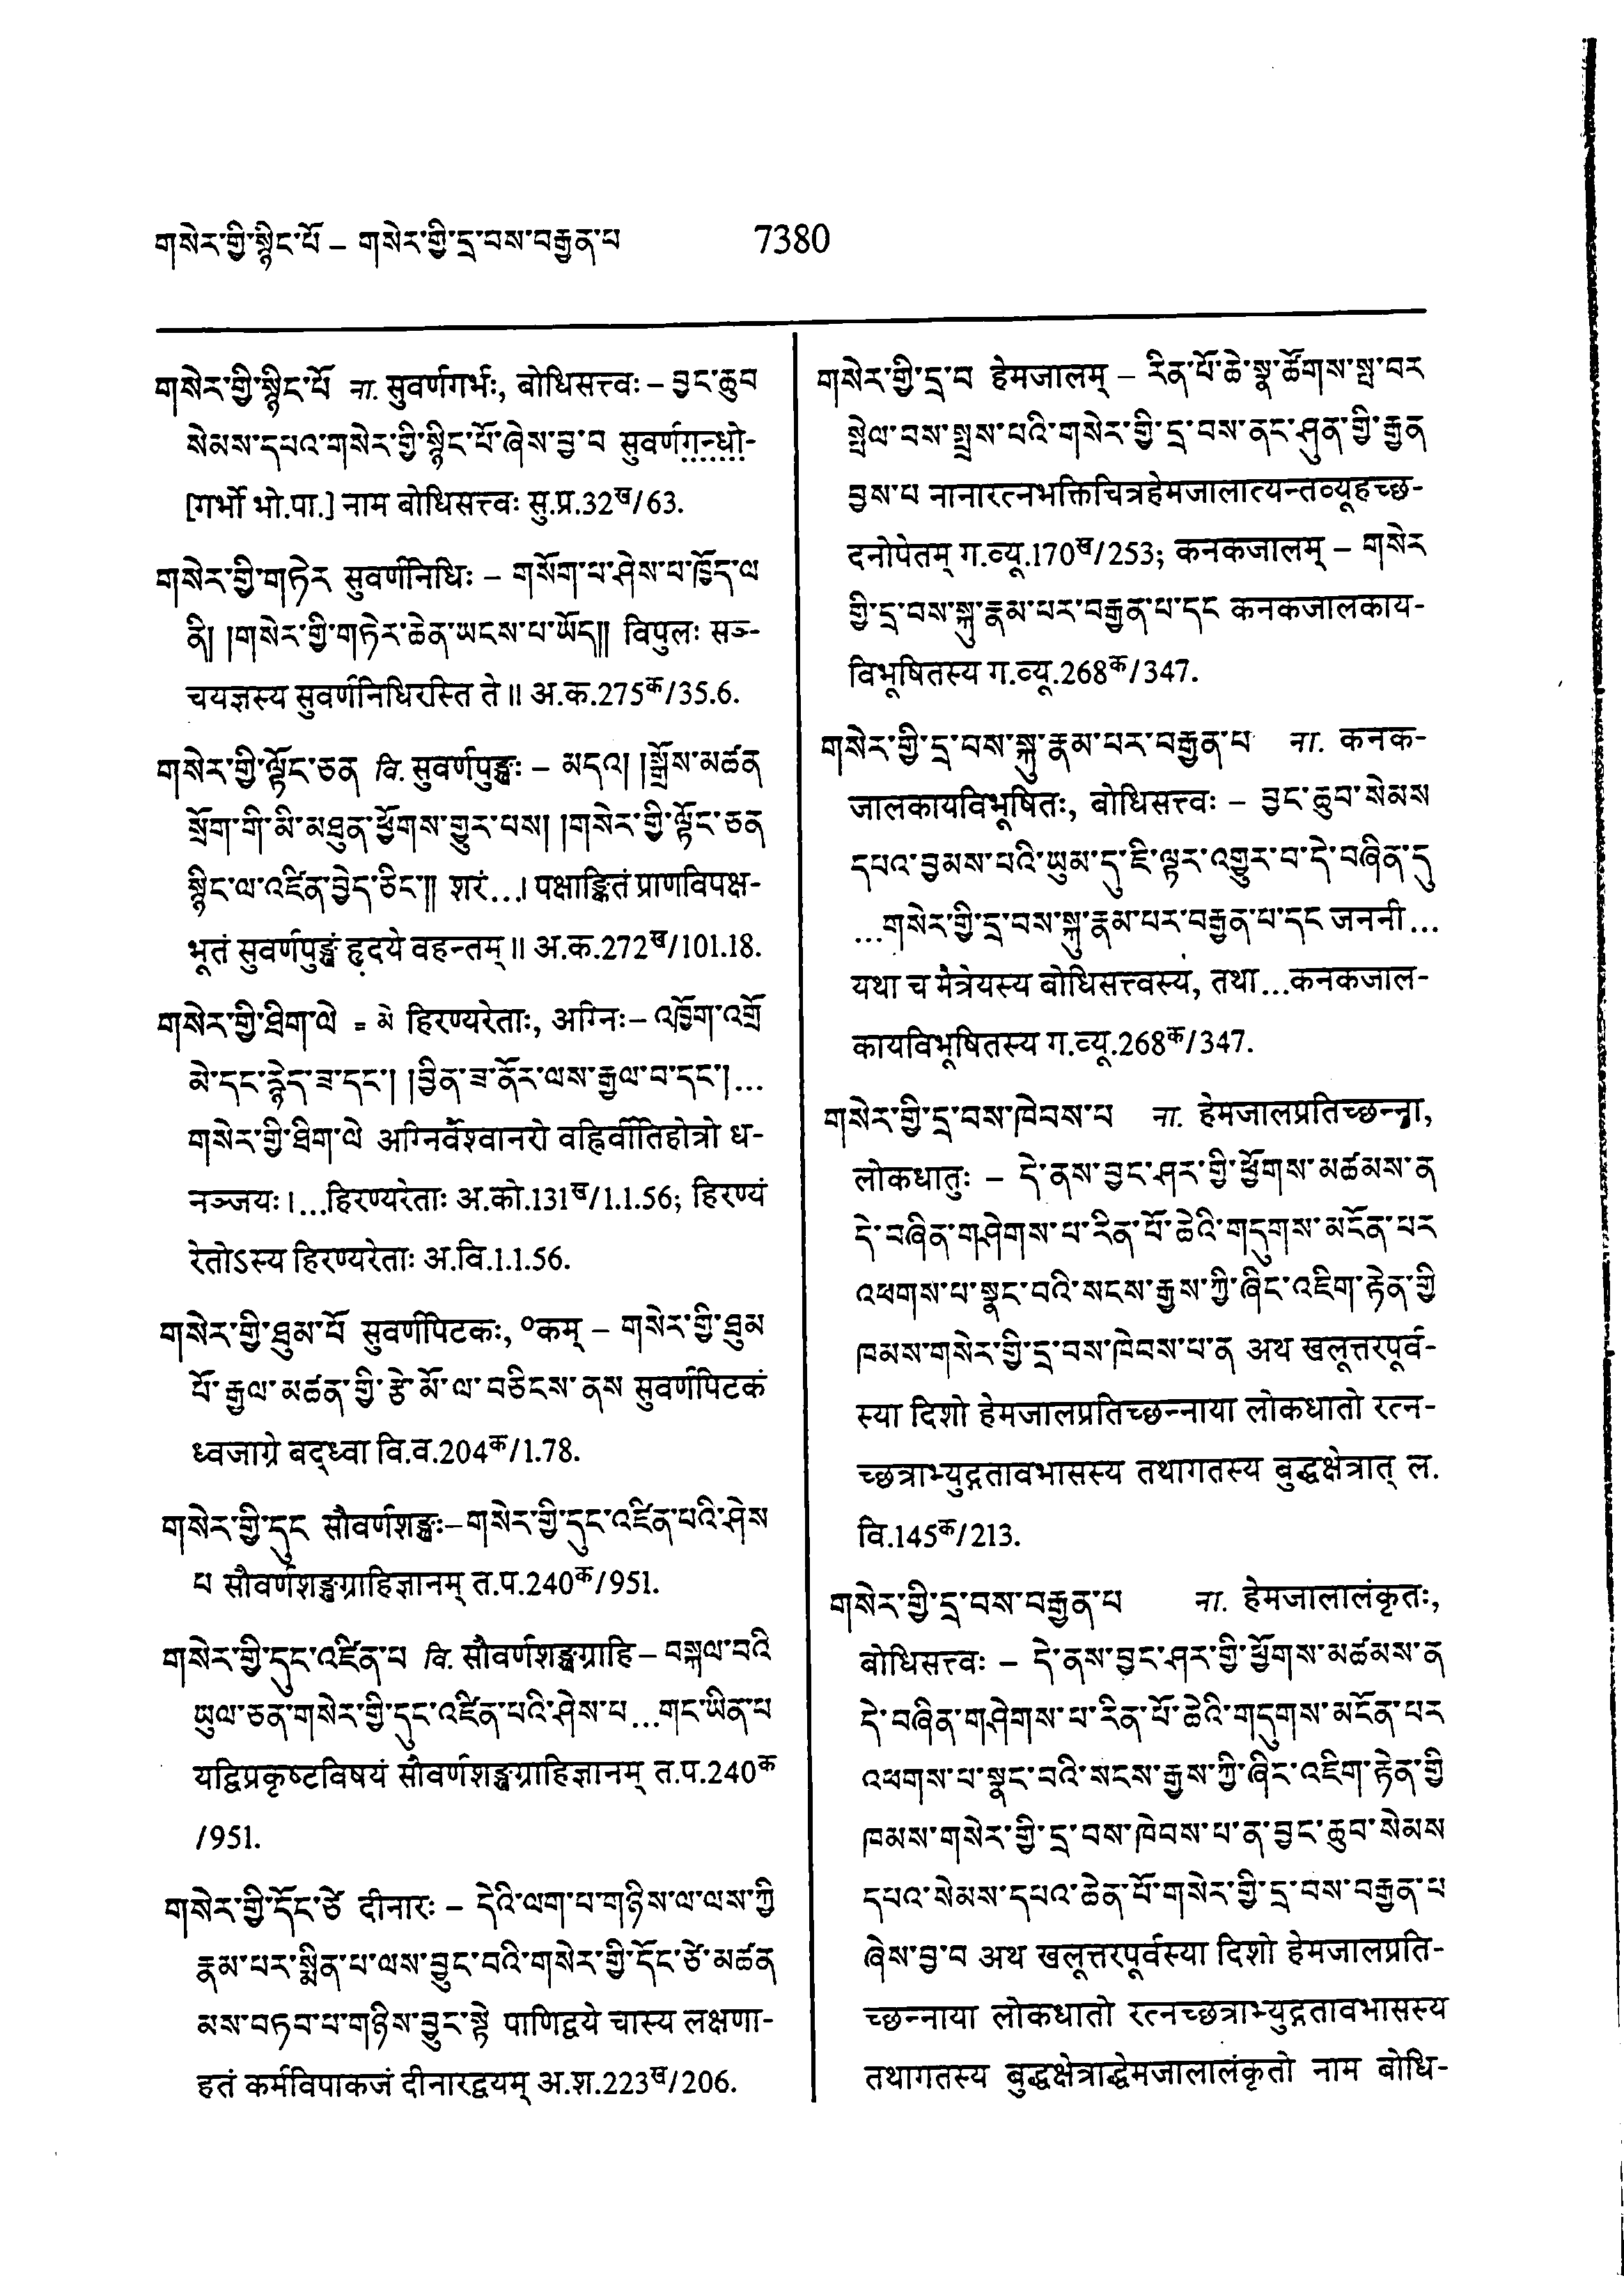 གསེར་གྱི་སྙིང་པོ – གསེར་གྱི་དྲ་བས་བརྒྱན་པ
7380
གསེར་གྱི་སྙིང་པོ ना. सुवर्णगर्भः, बोधिसत्त्वः – བྱང་ཆུབ
སེམས་དཔའ་གསེར་གྱི་སྙིང་པོ་ཞེས་བྱ་བ सुवर्णगन्धो-
[गर्भो भो.पा.] नाम बोधिसत्त्वः सु.प्र.32ख/63.
གསེར་གྱི་གཏེར सुवर्णनिधिः – གསོག་པ་ཤེས་པ་ཁྱོད་ལ
ནི། །གསེར་གྱི་གཏེར་ཆེན་ཡངས་པ་ཡོད།། विपुलः सञ्-
चयज्ञस्य सुवर्णनिधिरस्ति ते॥ अ.क.275क/35.6.
གསེར་གྱི་ལྟོང་ཅན वि. सुवर्णपुङ्खः – མདའ། །སྒྲོས་མཚན
སྲོག་གི་མི་མཐུན་ཕྱོགས་གྱུར་པས། །གསེར་གྱི་ལྟོང་ཅན
སྙིང་ལ་འཛིན་བྱེད་ཅིང་།། शरं...। पक्षाङ्कितं प्राणविपक्ष-
भूतं सुवर्णपुङ्खं हृदये वहन्तम्॥ अ.क.272ख/101.18.
གསེར་གྱི་ཐིག་ལེ = མེ हिरण्यरेताः, अग्निः– འཁྱོག་འགྲོ
མེ་དང་རྙེད་ཟ་དང་། །བྱིན་ཟ་ནོར་ལས་རྒྱལ་བ་དང་།...
གསེར་གྱི་ཐིག་ལེ अग्निर्वैश्वानरो वह्निर्वीतिहोत्रो ध-
नञ्जयः।...हिरण्यरेताः अ.को.131ख/1.1.56; हिरण्यं
रेतोऽस्य हिरण्यरेताः अ.वि.1.1.56.
གསེར་གྱི་ཐུམ་པོ सुवर्णपिटकः, ०कम् – གསེར་གྱི་ཐུམ
པོ་རྒྱལ་མཚན་གྱི་རྩེ་མོ་ལ་བཅིངས་ནས सुवर्णपिटकं
ध्वजाग्रे बद्ध्वा वि.व.204क/1.78.
གསེར་གྱི་དུང सौवर्णशङ्खः–གསེར་གྱི་དུང་འཛིན་པའི་ཤེས
པ सौवर्णशङ्खग्राहिज्ञानम् त.प.240क/951.
གསེར་གྱི་དུང་འཛིན་པ वि. सौवर्णशङ्खग्राहि – བསྐལ་བའི
ཡུལ་ཅན་གསེར་གྱི་དུང་འཛིན་པའི་ཤེས་པ...གང་ཡིན་པ
यद्विप्रकृष्टविषयं सौवर्णशङ्खग्राहिज्ञानम् त.प.240क
/951.
གསེར་གྱི་དོང་ཙེ दीनारः – དེའི་ལག་པ་གཉིས་ལ་ལས་ཀྱི
རྣམ་པར་སྨིན་པ་ལས་བྱུང་བའི་གསེར་གྱི་དོང་ཙེ་མཚན
མས་བཏབ་པ་གཉིས་བྱུང་སྟེ पाणिद्वये चास्य लक्षणा-
हतं कर्मविपाकजं दीनारद्वयम् अ.श.223ख/206.
གསེར་གྱི་དྲ་བ हेमजालम् – རིན་པོ་ཆེ་སྣ་ཚོགས་སྤ་བར
སྤེལ་བས་སྤྲས་པའི་གསེར་གྱི་དྲ་བས་ནང་ཤུན་གྱི་རྒྱན
བྱས་པ नानारत्नभक्तिचित्रहेमजालात्यन्तव्यूहच्छ-
दनोपेतम् ग.व्यू.170ख/253; कनकजालम् – གསེར
གྱི་དྲ་བས་སྐུ་རྣམ་པར་བརྒྱན་པ་དང कनकजालकाय-
विभूषितस्य ग.व्यू.268क/347.
གསེར་གྱི་དྲ་བས་སྐུ་རྣམ་པར་བརྒྱན་པ ना. कनक-
जालकायविभूषितः, बोधिसत्त्वः – བྱང་ཆུབ་སེམས
དཔའ་བྱམས་པའི་ཡུམ་དུ་ཇི་ལྟར་འགྱུར་བ་དེ་བཞིན་དུ
...གསེར་གྱི་དྲ་བས་སྐུ་རྣམ་པར་བརྒྱན་པ་དང जननी...
यथा च मैत्रेयस्य बोधिसत्त्वस्य, तथा...कनकजाल-
कायविभूषितस्य ग.व्यू.268क/347.
གསེར་གྱི་དྲ་བས་ཁེབས་པ ना. हेमजालप्रतिच्छन्ना,
लोकधातुः – དེ་ནས་བྱང་ཤར་གྱི་ཕྱོགས་མཚམས་ན
དེ་བཞིན་གཤེགས་པ་རིན་པོ་ཆེའི་གདུགས་མངོན་པར
འཕགས་པ་སྣང་བའི་སངས་རྒྱས་ཀྱི་ཞིང་འཇིག་རྟེན་གྱི
ཁམས་གསེར་གྱི་དྲ་བས་ཁེབས་པ་ན अथ खलूत्तरपूर्व-
स्या दिशो हेमजालप्रतिच्छन्नाया लोकधातो रत्न-
च्छत्राभ्युद्गतावभासस्य तथागतस्य बुद्धक्षेत्रात् ल.
वि.145क/213.
གསེར་གྱི་དྲ་བས་བརྒྱན་པ ना. हेमजालालंकृतः,
बोधिसत्त्वः – དེ་ནས་བྱང་ཤར་གྱི་ཕྱོགས་མཚམས་ན
དེ་བཞིན་གཤེགས་པ་རིན་པོ་ཆེའི་གདུགས་མངོན་པར
འཕགས་པ་སྣང་བའི་སངས་རྒྱས་ཀྱི་ཞིང་འཇིག་རྟེན་གྱི
ཁམས་གསེར་གྱི་དྲ་བས་ཁེབས་པ་ན་བྱང་ཆུབ་སེམས
དཔའ་སེམས་དཔའ་ཆེན་པོ་གསེར་གྱི་དྲ་བས་བརྒྱན་པ
ཞེས་བྱ་བ अथ खलूत्तरपूर्वस्या दिशो हेमजालप्रति-
च्छन्नाया लोकधातो रत्नच्छत्राभ्युद्गतावभासस्य
तथागतस्य बुद्धक्षेत्राद्धेमजालालंकृतो नाम बोधि-